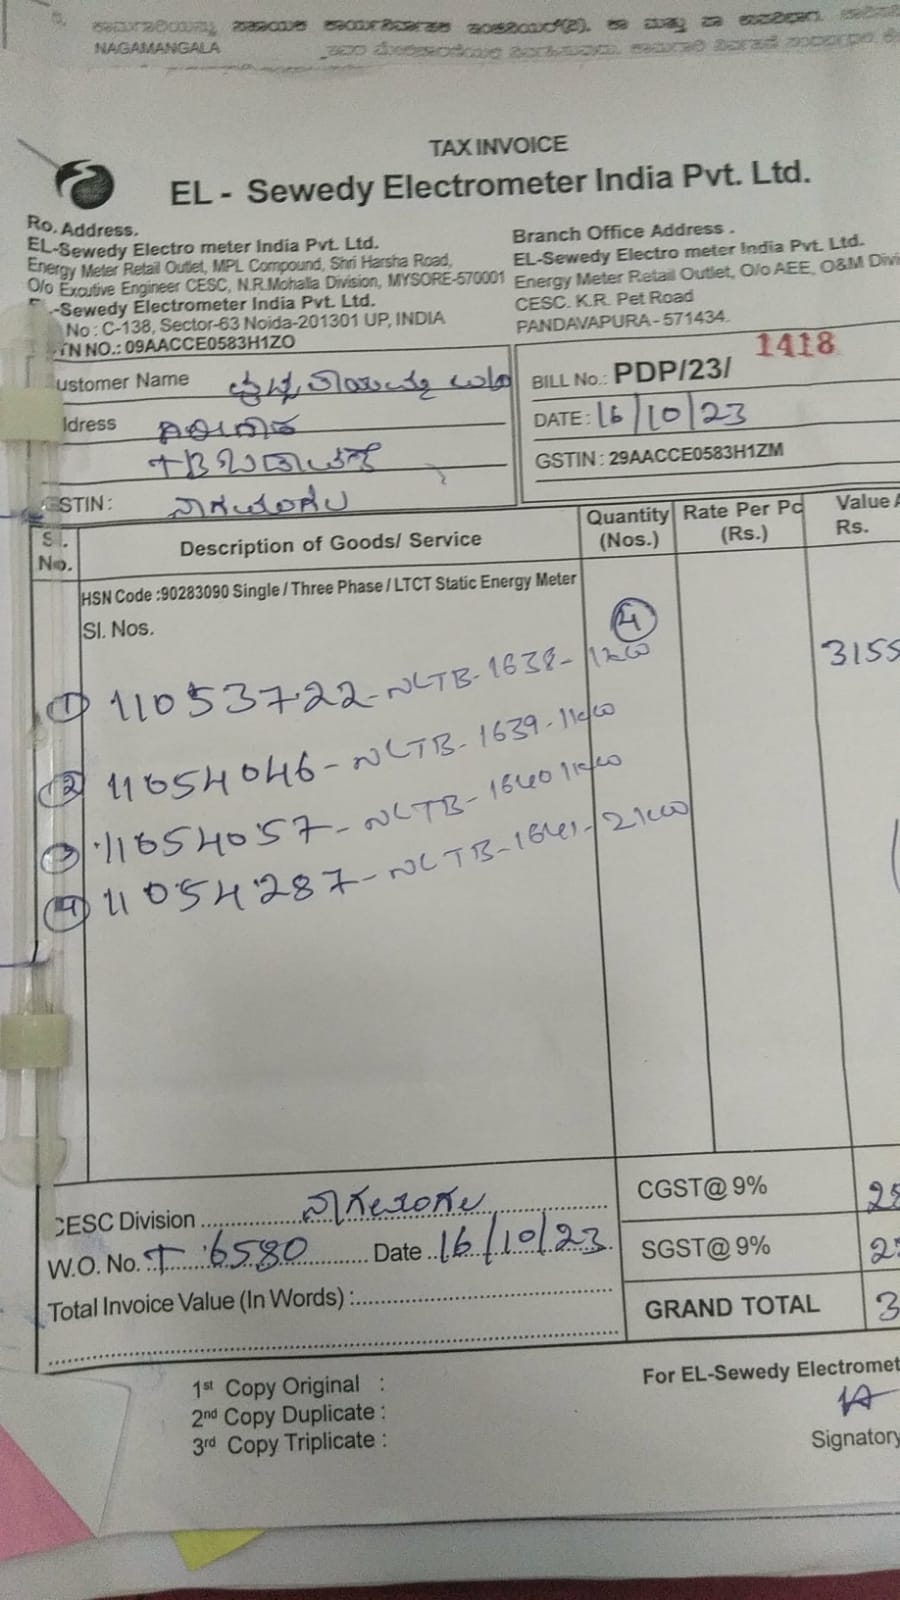 NAGAMANGALA
TAX INVOICE
EL - Sewedy Electrometer India Pvt. Ltd.
Ro. Address.
EL-Sewedy Electro meter India Pvt. Ltd.
Energy Meter Retail Outlet, MPL Compound, Shri Harsha Road,
O/o Excutive Engineer CESC, N.R.Mohalla Division, MYSORE-570001
-Sewedy Electrometer India Pvt. Ltd.
No : C-138, Sector-63 Noida-201301 UP, INDIA
TN NO.: 09AACCE0583H1ZO
Branch Office Address .
EL-Sewedy Electro meter India Pvt. Ltd.
Energy Meter Retail Outlet, O/o AEE, O&M Divi
CESC. K.R. Pet Road
PANDAVAPURA - 571434.
ustomer Name
ddress
STIN : ನಾಗಮಂಗಲ
1418
BILL No.: PDP/23/
DATE : 16/10/23
GSTIN : 29AACCE0583H1ZM
Sl. No. Description of Goods/ Service Quantity (Nos.) Rate Per Pc (Rs.) Value Rs.
HSN Code :90283090 Single / Three Phase / LTCT Static Energy Meter
Sl. Nos. 4
① 11053722-NLTB-1638-1KW 3155
② 11054046-NLTB-1639-1KW
③ 11054057-NLTB-1640 1KW
④ 11054287-NLTB-1641-2KW
CESC Division ನಾಗಮಂಗಲ
W.O. No. T 6580 Date 16/10/23
Total Invoice Value (In Words) :
CGST@ 9%
SGST@ 9%
GRAND TOTAL 3
1st Copy Original :
2nd Copy Duplicate :
3rd Copy Triplicate :
For EL-Sewedy Electromet
Signatory